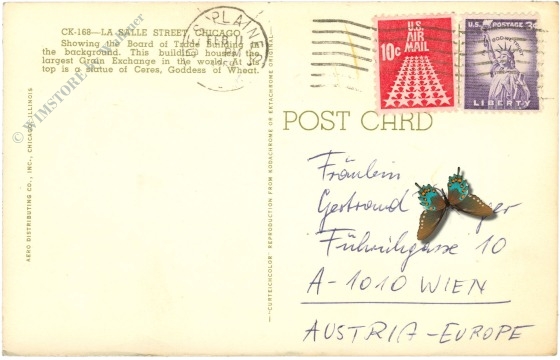 CK-168—LA SALLE STREET, CHICAGO
Showing the Board of Trade Building in
the background. This building houses the
largest Grain Exchange in the world. At its
top is a statue of Ceres, Goddess of Wheat.
© WIMSTORE
AERO DISTRIBUTING CO., INC., CHICAGO, ILLINOIS
—"CURTEICHCOLOR" REPRODUCTION FROM KODACHROME OR EKTACHROME ORIGINAL
PLAINES
FEB
U.S.
AIR
MAIL
10c
U.S. POSTAGE 3c
IN GOD WE TRUST
LIBERTY
POST CARD
Fräulein
Gertraud
Führichgasse 10
A-1010 WIEN
AUSTRIA-EUROPE